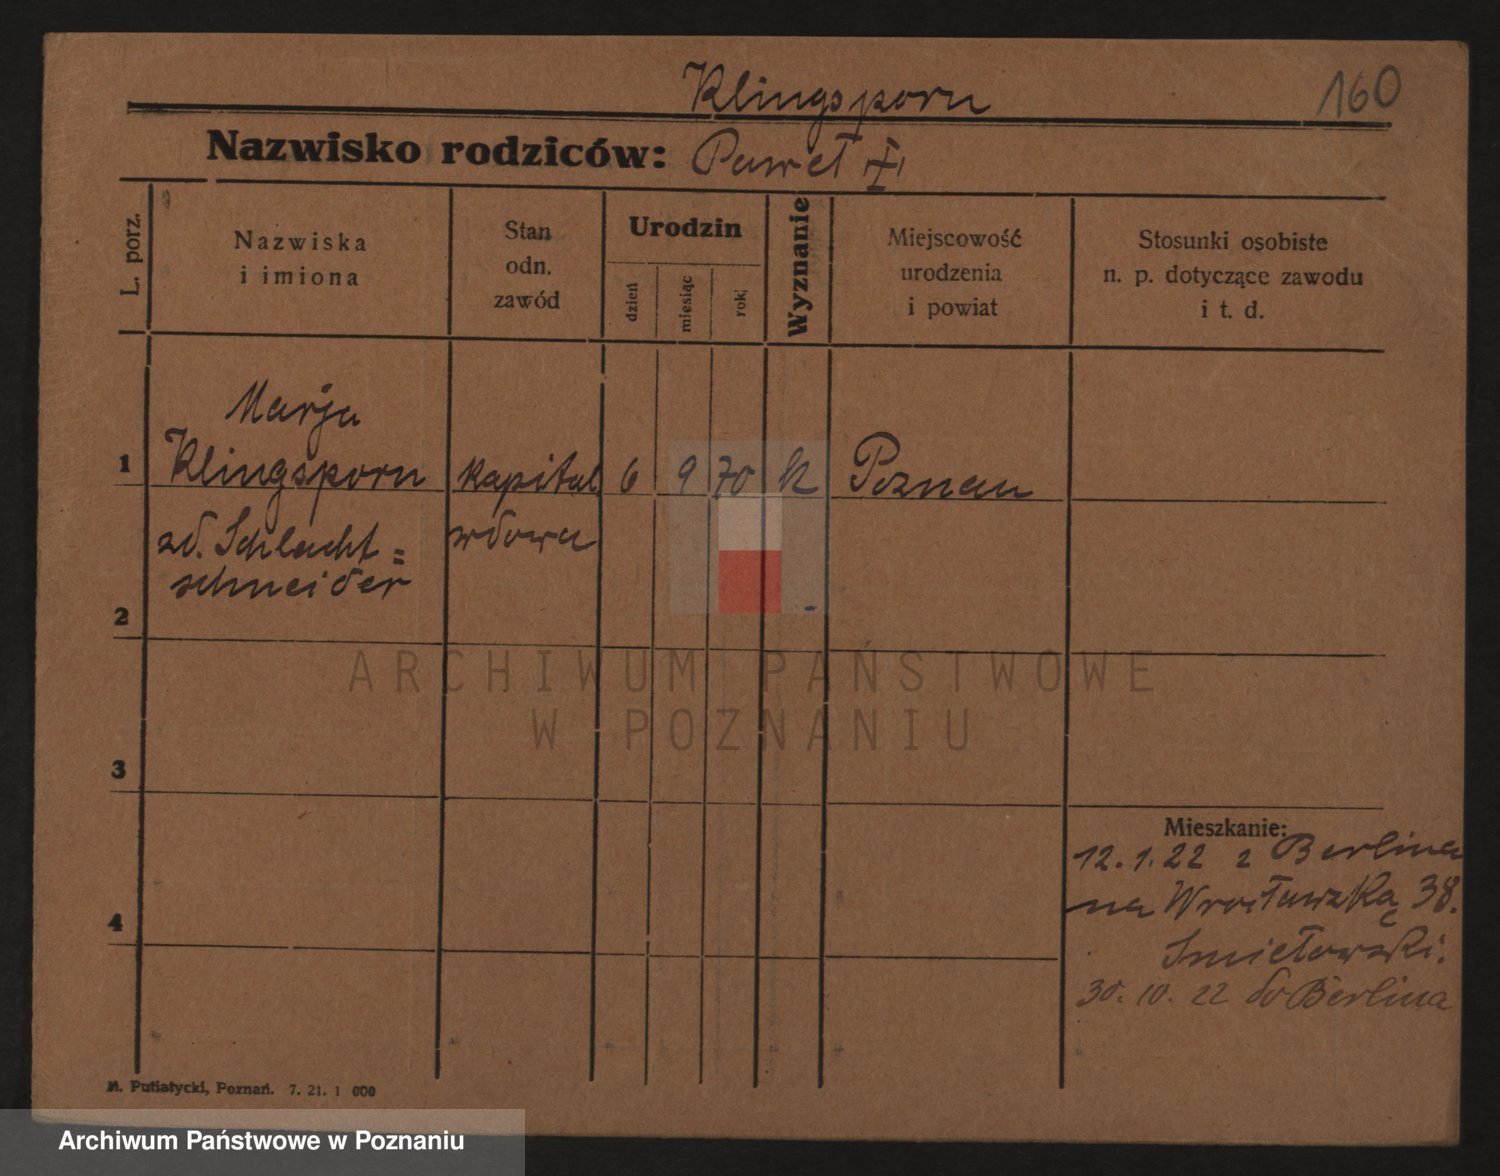 Klingsporn
160
Nazwisko rodziców: Paweł
L. porz.
Nazwiska
i imiona
Stan
odn.
zawód
Urodzin
dzień
miesiąc
rok
Wyznanie
Miejscowość
urodzenia
i powiat
Stosunki osobiste
n. p. dotyczące zawodu
i t. d.
Marja
1 Klingsporn kapital 6 9 70 k Poznan
zd. Schlacht= wdowa
schneider
2
ARCHIWUM PAŃSTWOWE
W POZNANIU
3
Mieszkanie:
12.1.22 z Berlina
na Wrocławską 38.
4
Śmiełowski.
30.10.22 do Berlina
M. Putiatycki, Poznań. 7. 21. 1 000
Archiwum Państwowe w Poznaniu